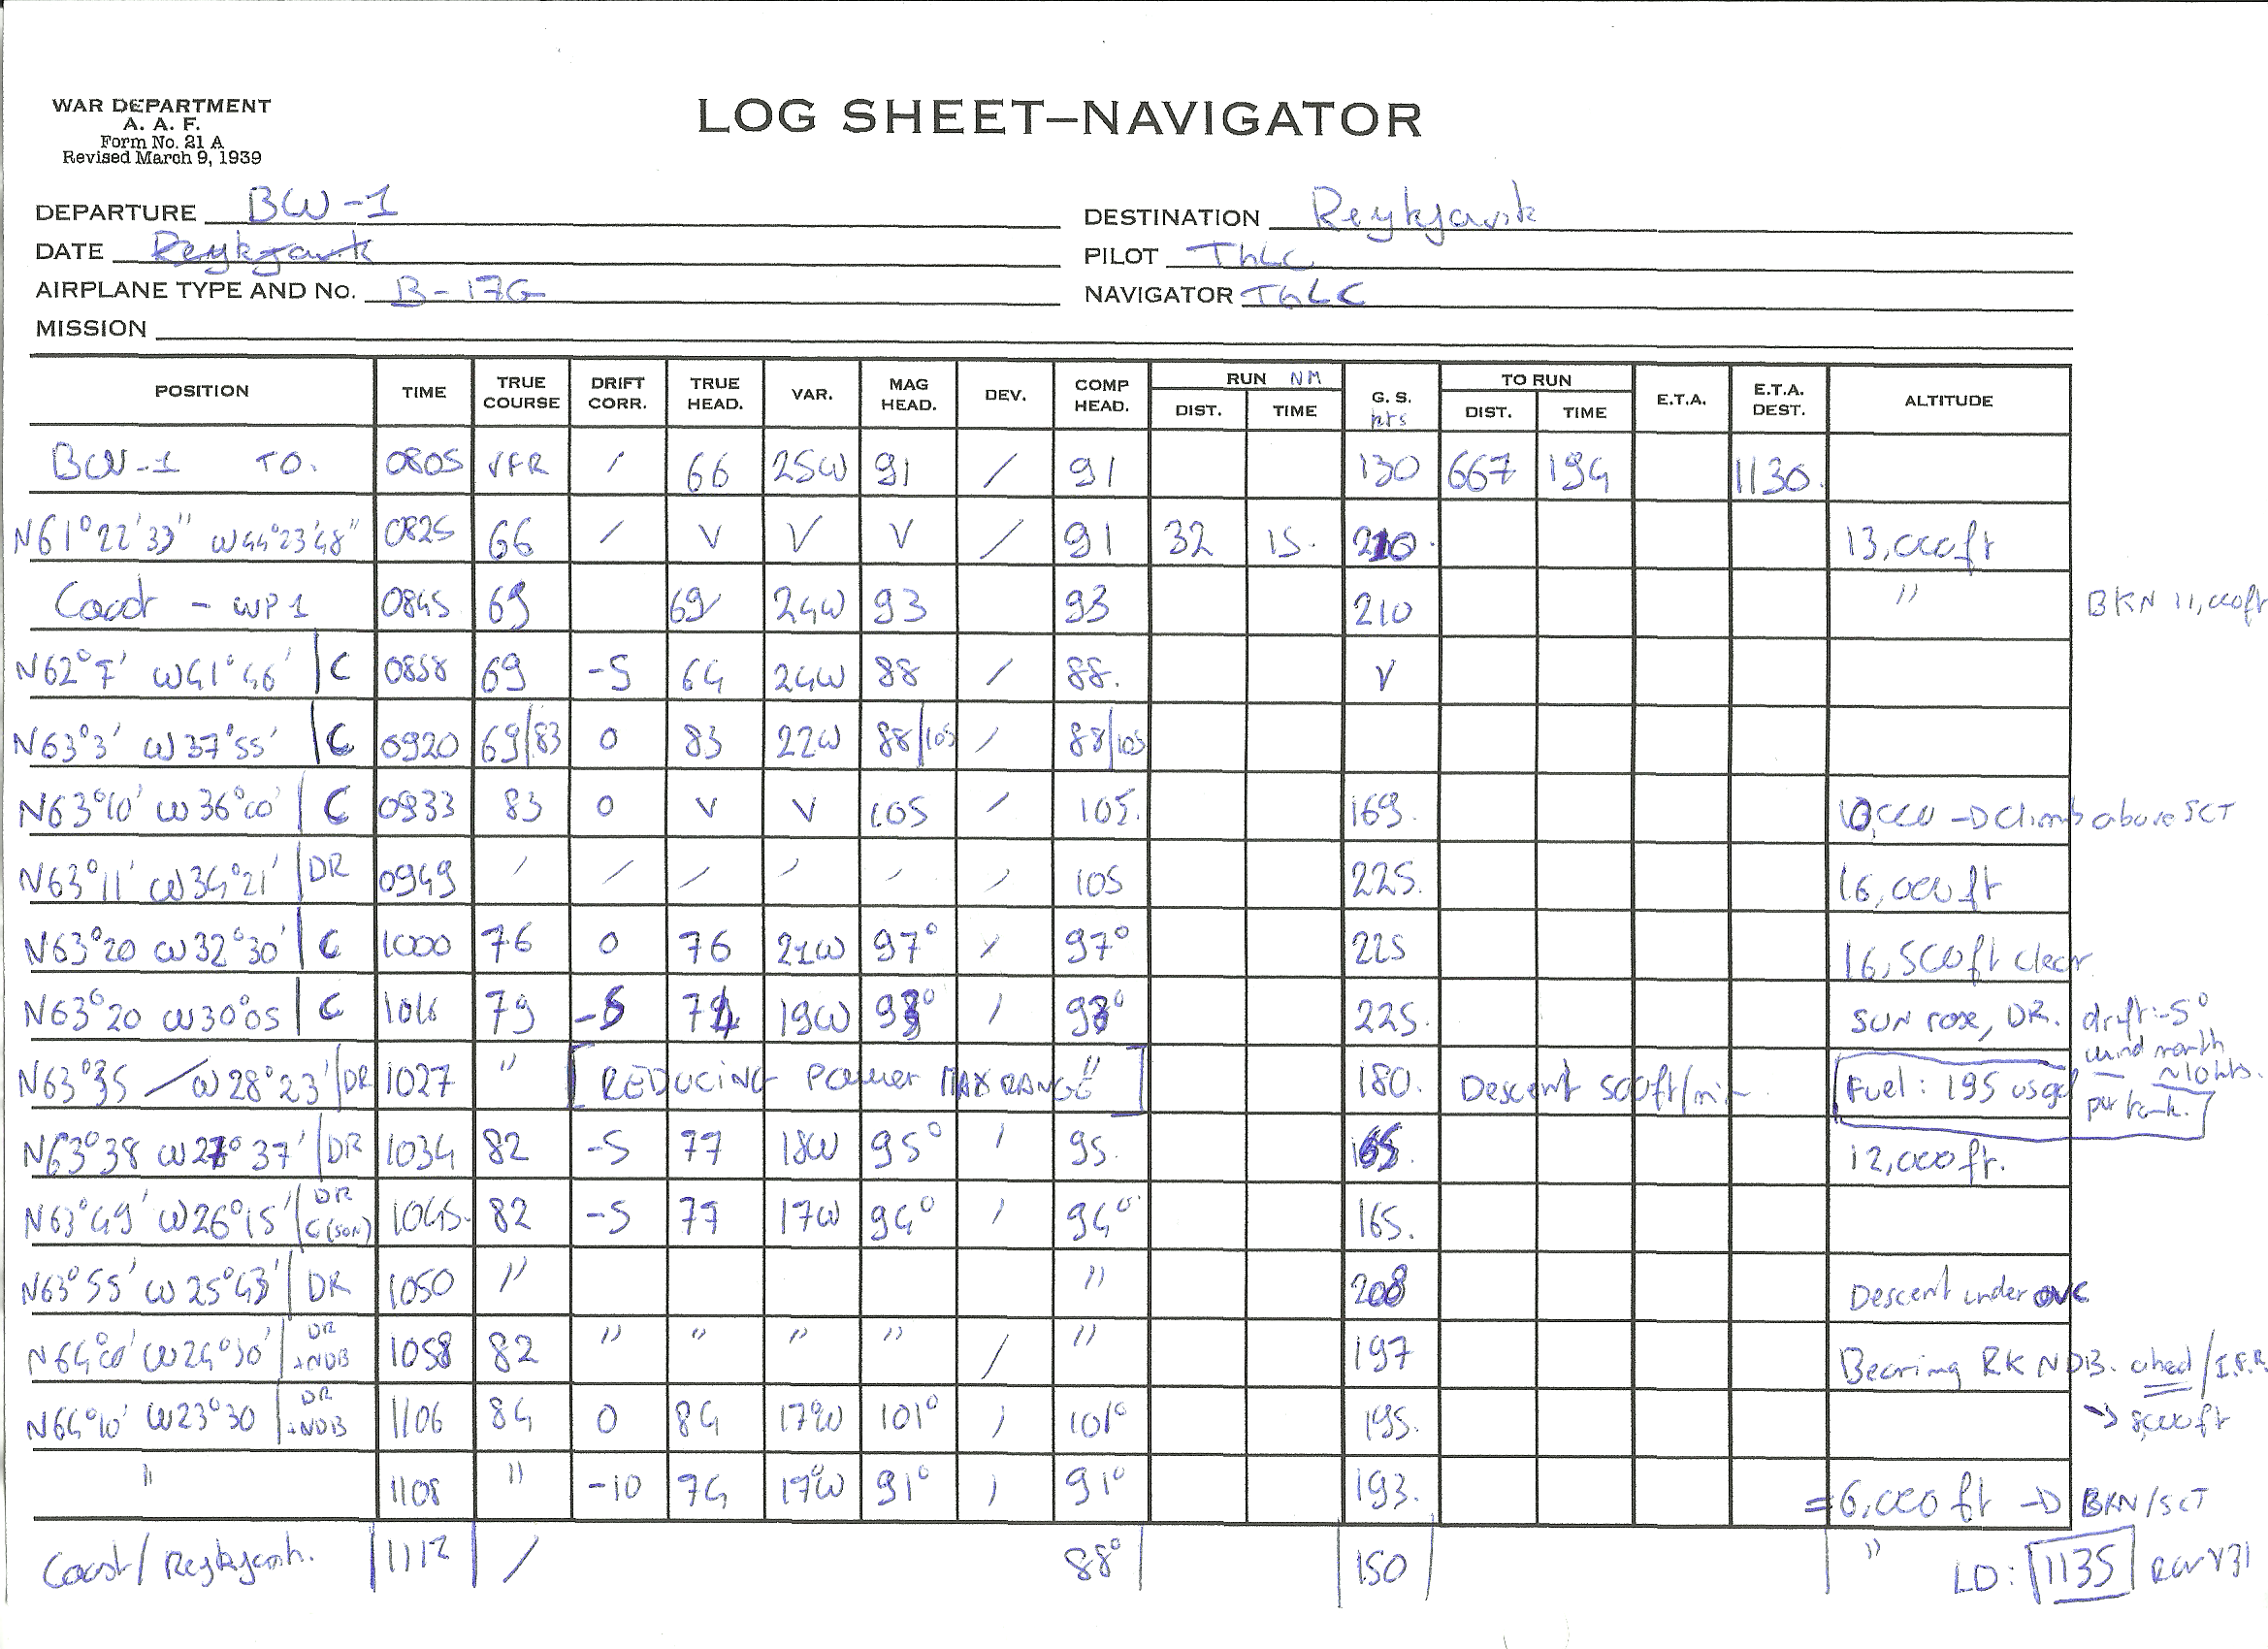 WAR DEPARTMENT
A. A. F.
Form No. 21 A
Revised March 9, 1939
LOG SHEET—NAVIGATOR
DEPARTURE BW-1
DESTINATION Reykjavik
DATE Reykjavik
PILOT ThLC
AIRPLANE TYPE AND No. B-17G
NAVIGATOR ThLC
MISSION
POSITION TIME TRUE COURSE DRIFT CORR. TRUE HEAD. VAR. MAG HEAD. DEV. COMP HEAD. RUN NM DIST. TIME G. S. kts TO RUN DIST. TIME E.T.A. E.T.A. DEST. ALTITUDE
BW-1 TO. 0805 VFR / 66 25W 91 / 91 130 667 194 1130.
N61°22'33" W44°23'48" 0825 66 / V V V / 91 32 15. 210. 13,000ft
Coast - WP1 0845 69 69 24W 93 93 210 " BKN 11,000ft
N62°7' W41°46' | C 0858 69 -5 64 24W 88 / 88. V
N63°3' W37°55' | C 0920 69/83 0 83 22W 88/105 / 88/105
N63°10' W36°00' | C 0933 83 0 V V 105 / 105. 169. 10,000 -> Climb above SCT
N63°11' W34°21' | DR 0949 / / / / / / 105 225. 16,000ft
N63°20 W32°30' | C 1000 76 0 76 21W 97° / 97° 225 16,500ft clear
N63°20 W30°05 | C 1016 79 -5 74 19W 93° / 93° 225. SUN rose, DR. drift:-5°
wind north
~10kts.
N63°35 / W28°23' | DR 1027 " [REDUCING Power MAX RANGE"] 180. Descent 500ft/min Fuel: 195 usgal per tank.
N63°38 W27°37' | DR 1034 82 -5 77 18W 95° / 95. 165. 12,000ft.
N63°49' W26°15' | DR C(SUN) 1045. 82 -5 77 17W 94° / 94° 165.
N63°55' W25°43' | DR 1050 " " 208 Descent under OVC
N64°00' W24°30' | DR +NDB 1058 82 " " " " / " 197 Bearing RK NDB. ahead / I.F.R.
N64°10' W23°30 | DR +NDB 1106 84 0 84 17°W 101° / 101° 195. -> 8,000ft
" 1108 " -10 74 17°W 91° / 91° 193. = 6,000ft -> BKN/SCT
Coast/Reykjavik. 1112 / 88° 150 " LD: 1135 RWY31